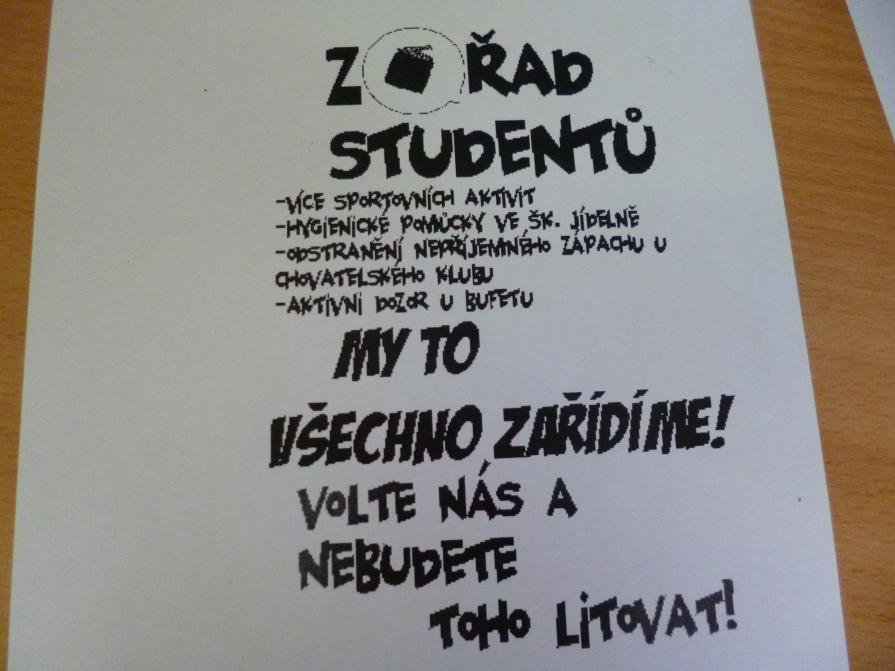 Z ŘAD
STUDENTŮ
-VÍCE SPORTOVNÍCH AKTIVIT
-HYGIENICKÉ POMŮCKY VE ŠK. JÍDELNĚ
-ODSTRANĚNÍ NEPŘÍJEMNÉHO ZÁPACHU U
CHOVATELSKÉHO KLUBU
-AKTIVNÍ DOZOR U BUFETU
MY TO
VŠECHNO ZAŘÍDÍME!
VOLTE NÁS A
NEBUDETE
TOHO LITOVAT!